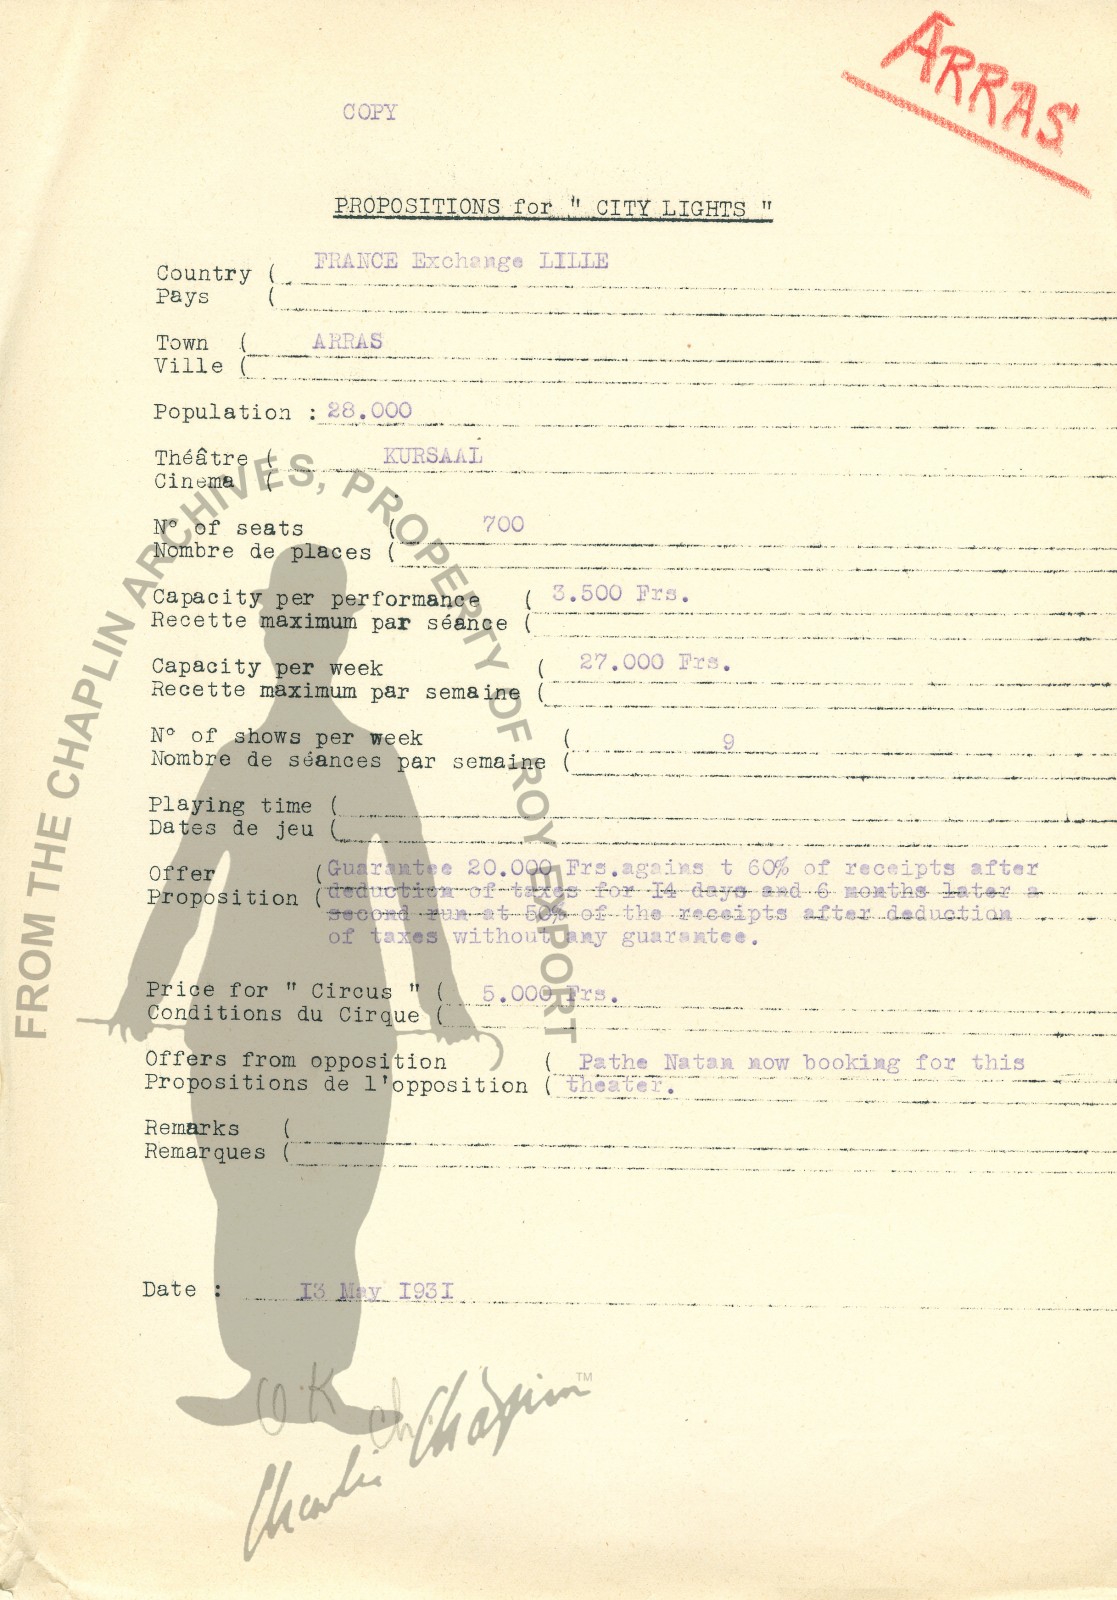 ARRAS
COPY
PROPOSITIONS for " CITY LIGHTS "
Country ( FRANCE Exchange LILLE
Pays (
Town ( ARRAS
Ville (
Population : 28.000
Théâtre ( KURSAAL
Cinema (
N° of seats ( 700
Nombre de places (
Capacity per performance ( 3.500 Frs.
Recette maximum par séance (
Capacity per week ( 27.000 Frs.
Recette maximum par semaine (
N° of shows per week ( 9
Nombre de séances par semaine (
Playing time (
Dates de jeu (
Offer ( Guarantee 20.000 Frs.agains t 60% of receipts after
Proposition ( deduction of taxes for I4 days and 6 months later a
second run at 50% of the receipts after deduction
of taxes without any guarantee.
Price for " Circus " ( 5.000 Frs.
Conditions du Cirque (
Offers from opposition ( Pathe Natan now booking for this
Propositions de l'opposition ( theater.
Remarks (
Remarques (
Date : I3 May I93I
O.K Ch
Charlie Chaplin TM
FROM THE CHAPLIN ARCHIVES, PROPERTY OF ROY EXPORT